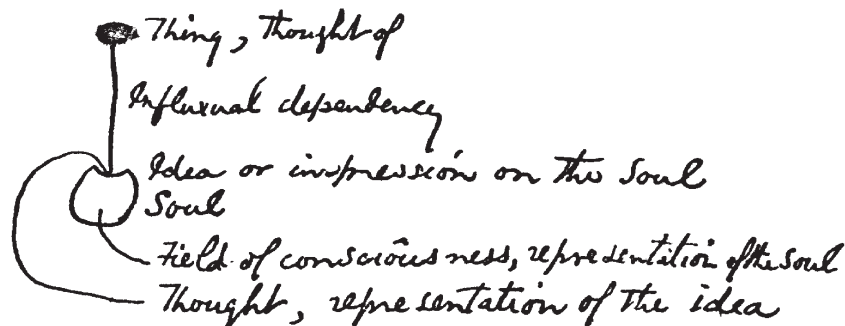 Thing, thought of
Influxual dependency
Idea or impression on the soul
Soul
Field of consciousness, representation of the soul
Thought, representation of the idea